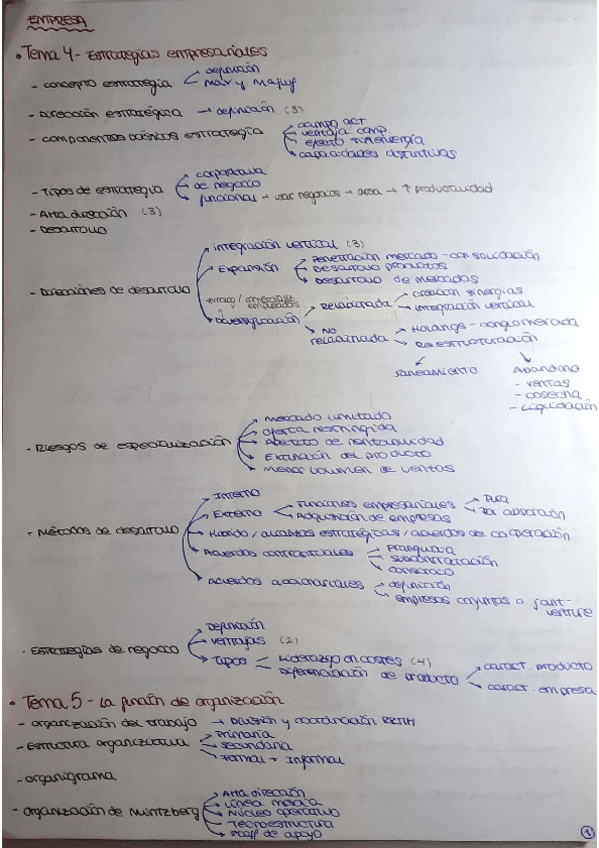 EMPRESA
• Tema 4 - Estrategias empresariales
- concepto estrategia
definición
- Dirección estratégica → definición (3)
- componentes básicos estrategia
campo act
ventaja comp
efecto sinergia
capacidades distintivas
- Tipos de estrategia
corporativa
de negocio
funcional → → area → ↑ productividad
- Alta dirección (3)
- Desarrollo
- Direcciones de desarrollo
integración vertical (3)
Expansión
Penetración mercado - consolidación
Desarrollo productos
Desarrollo de mercados
Diversificación
Relacionada
creación sinergias
integración vertical
No relacionada
Holdings - conglomerada
Reestructuración
saneamiento
Abandono
- ventas
- cosecha
- Liquidación
- Riesgos de especialización
mercado limitado
oferta restringida
de rentabilidad
del producto
menor volumen de ventas
- Métodos de desarrollo
Interno
Externo
Funciones empresariales
Pura
Por absorción
Adquisición de empresas
Híbrido / alianzas estratégicas / acuerdos de cooperación
Acuerdos contractuales
Franquicia
subcontratación
consorcio
Acuerdos accionariales
definición
empresas conjuntas o joint-venture
- Estrategias de negocio
Definición
ventajas (2)
Tipos
Liderazgo en costes (4)
Diferenciación de producto
caract. producto
caract. empresa
• Tema 5 - La función de organización
- organización del trabajo → División y coordinación RRHH
- Estructura organizativa
Primaria
secundaria
Formal + Informal
- organigrama
- organización de Mintzberg
Alta dirección
Línea media
Núcleo operativo
Tecnoestructura
staff de apoyo
1